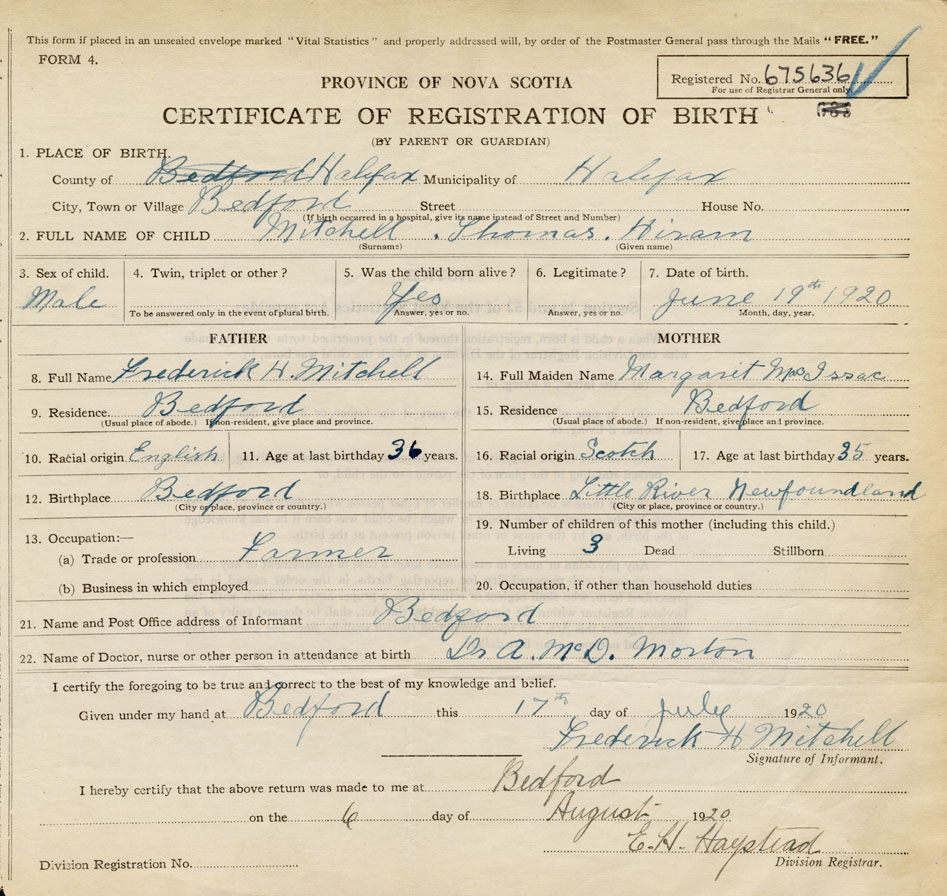 This form if placed in an unsealed envelope marked "Vital Statistics" and properly addressed will, by order of the Postmaster General pass through the Mails "FREE."
FORM 4.
Registered No. 675636
For use of Registrar General only.
PROVINCE OF NOVA SCOTIA
CERTIFICATE OF REGISTRATION OF BIRTH
(BY PARENT OR GUARDIAN)
1. PLACE OF BIRTH.
County of Bedford Halifax Municipality of Halifax
City, Town or Village Bedford Street House No.
(If birth occurred in a hospital, give its name instead of Street and Number)
2. FULL NAME OF CHILD Mitchell . Thomas . Hiram
(Surname) (Given name)
3. Sex of child. 4. Twin, triplet or other? 5. Was the child born alive? 6. Legitimate? 7. Date of birth.
Male Yes June 19th 1920
To be answered only in the event of plural birth. Answer, yes or no. Answer, yes or no. Month, day, year.
FATHER MOTHER
8. Full Name Frederick H. Mitchell 14. Full Maiden Name Margaret McIssac
9. Residence. Bedford 15. Residence Bedford
(Usual place of abode.) If non-resident, give place and province. (Usual place of abode.) If non-resident, give place and province.
10. Racial origin English 11. Age at last birthday 36 years. 16. Racial origin Scotch 17. Age at last birthday 35 years.
12. Birthplace Bedford 18. Birthplace Little River Newfoundland
(City or place, province or country.) (City or place, province or country.)
13. Occupation:— 19. Number of children of this mother (including this child.)
(a) Trade or profession Farmer Living 3 Dead Stillborn
(b) Business in which employed 20. Occupation, if other than household duties
21. Name and Post Office address of Informant Bedford
22. Name of Doctor, nurse or other person in attendance at birth Dr A. McD. Morton
I certify the foregoing to be true and correct to the best of my knowledge and belief.
Given under my hand at Bedford this 17th day of July 1920
Frederick H Mitchell
Signature of Informant.
I hereby certify that the above return was made to me at Bedford
on the 6 day of August 1920
E. H. Haystead
Division Registration No. Division Registrar.